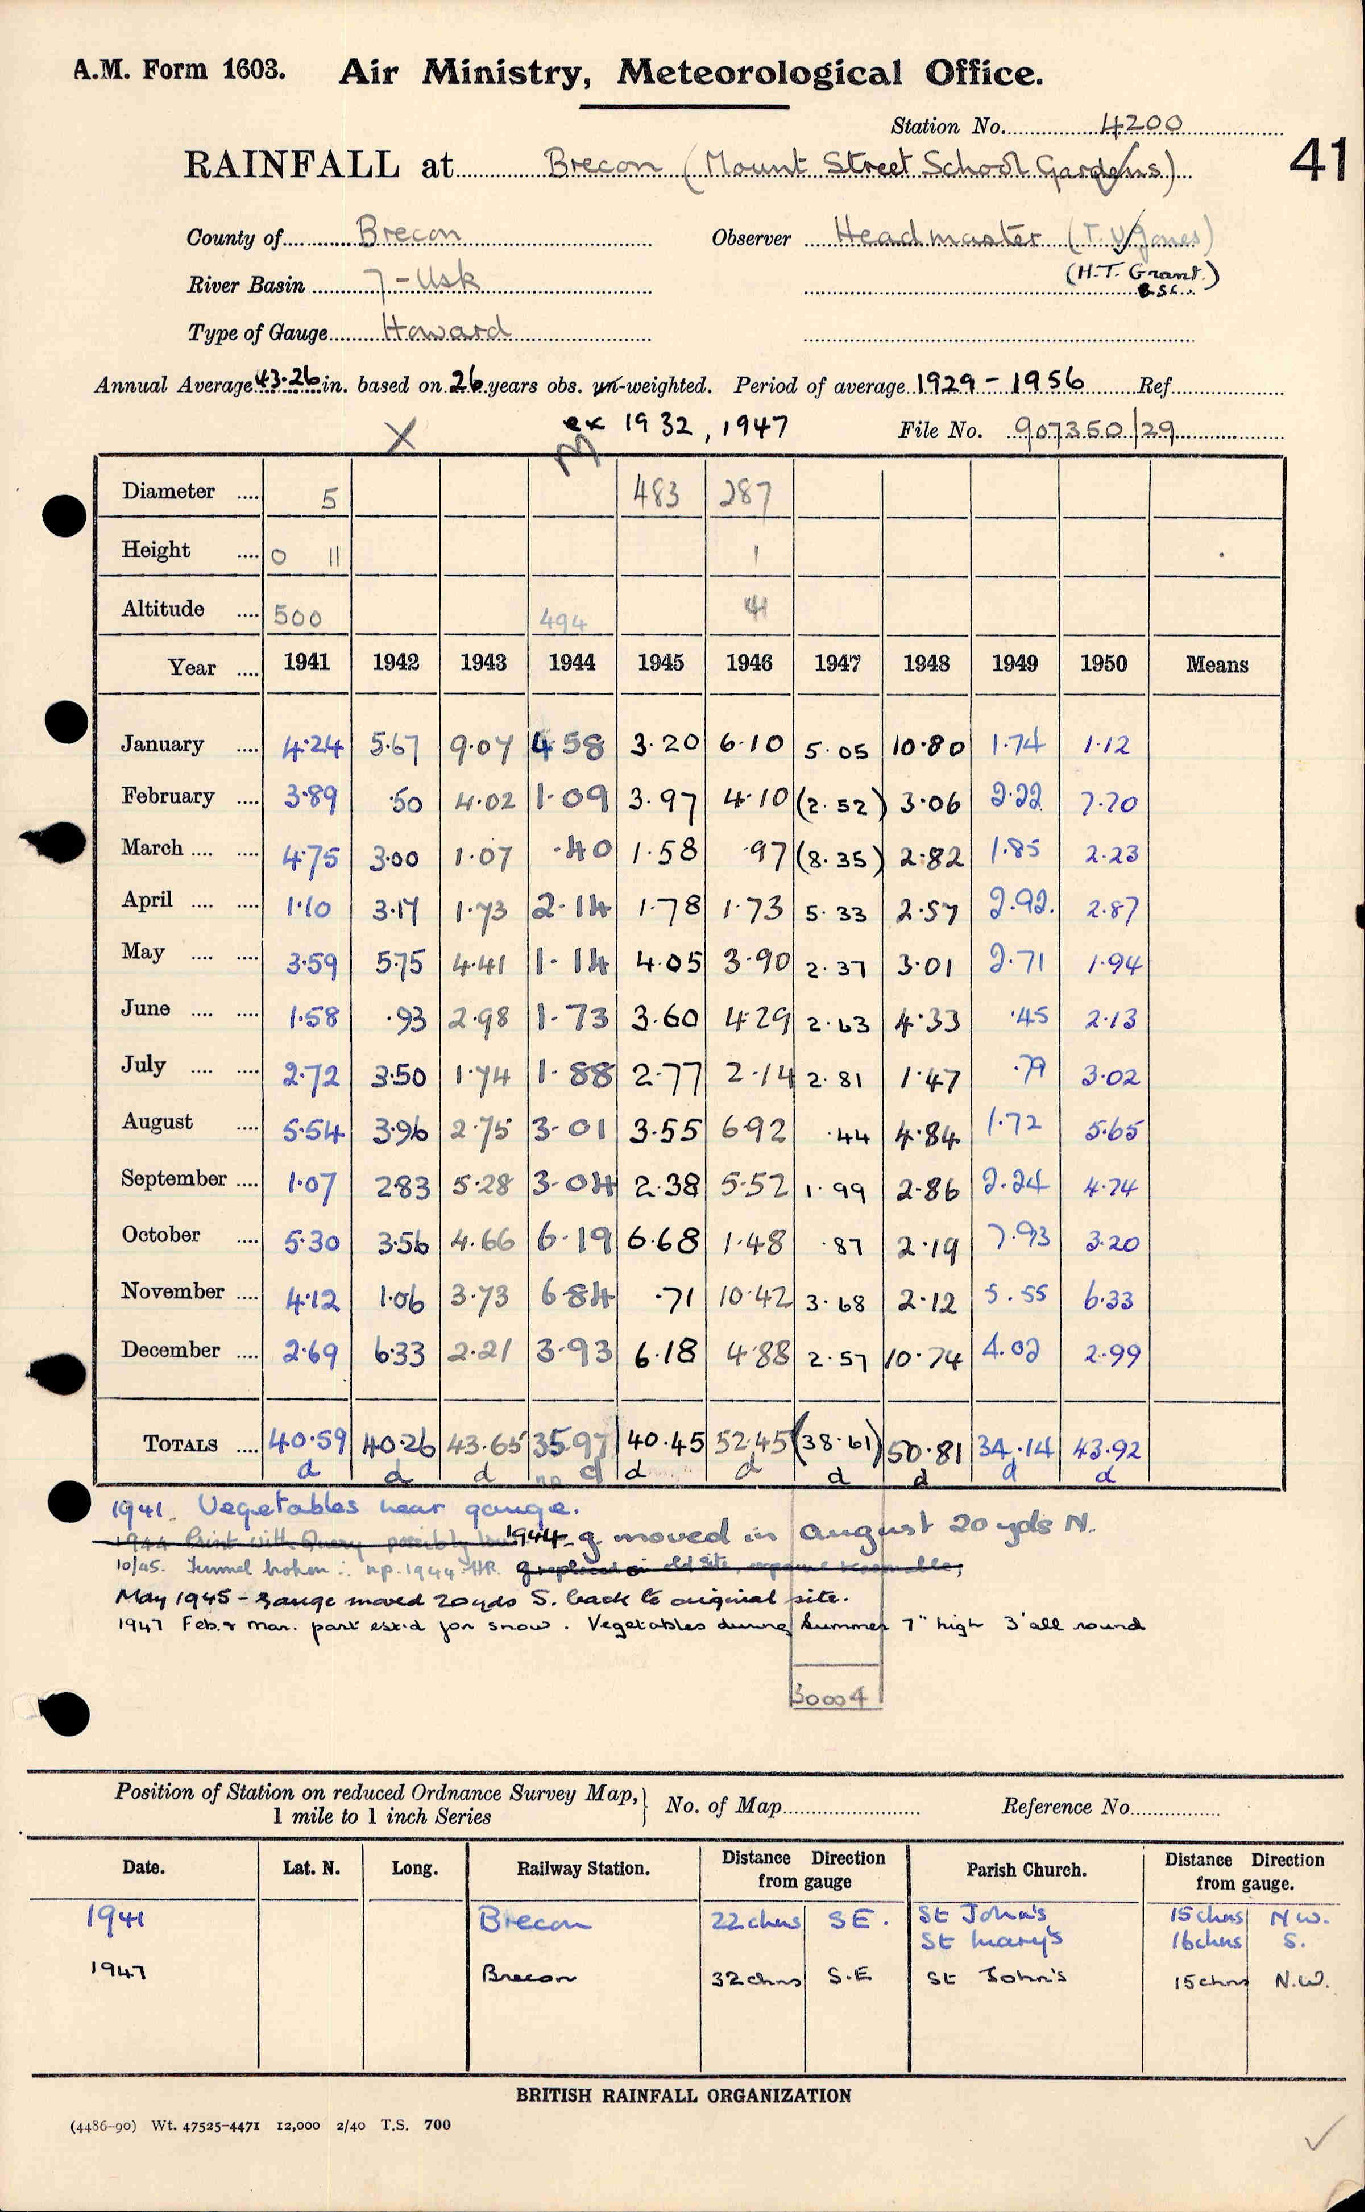 A.M. Form 1603. Air Ministry, Meteorological Office.
Station No. 4200
41
RAINFALL at Brecon (Mount Street School Gardens)
County of Brecon Observer Headmaster (T. V. Jones)
River Basin 7 - Usk (H.T. Grant.) B.Sc.
Type of Gauge Howard
Annual Average 43.26 in. based on 26 years obs. un-weighted. Period of average 1929 - 1956 Ref.
X ex 1932, 1947 File No. 907350/29
M
Diameter 5 483 287
Height 0 11 1
Altitude 500 494 41
Year 1941 1942 1943 1944 1945 1946 1947 1948 1949 1950 Means
January 4.24 5.67 9.07 4.58 3.20 6.10 5.05 10.80 1.74 1.12
February 3.89 .50 4.02 1.09 3.97 4.10 (2.52) 3.06 2.22 7.70
March 4.75 3.00 1.07 .40 1.58 .97 (8.35) 2.82 1.85 2.23
April 1.10 3.17 1.73 2.14 1.78 1.73 5.33 2.57 2.92 2.87
May 3.59 5.75 4.41 1.14 4.05 3.90 2.37 3.01 2.71 1.94
June 1.58 .93 2.98 1.73 3.60 4.29 2.63 4.33 .45 2.13
July 2.72 3.50 1.74 1.88 2.77 2.14 2.81 1.47 .79 3.02
August 5.54 3.96 2.75 3.01 3.55 6.92 .44 4.84 1.72 5.65
September 1.07 2.83 5.28 3.04 2.38 5.52 1.99 2.86 2.24 4.74
October 5.30 3.56 4.66 6.19 6.68 1.48 .87 2.19 7.93 3.20
November 4.12 1.06 3.73 6.84 .71 10.42 3.68 2.12 5.55 6.33
December 2.69 6.33 2.21 3.93 6.18 4.88 2.57 10.74 4.02 2.99
TOTALS 40.59 40.26 43.65 35.97 40.45 52.45 (38.61) 50.81 34.14 43.92
d d d np d d d d d d d
1941 Vegetables near gauge.
1944 g moved in August 20 yds N.
10/45. Funnel broken ∴ np. 1944 HR. old site,
May 1945 - Gauge moved 20 yds S. back to original site.
1947 Feb. & Mar. part est'd for snow. Vegetables during Summer 7" high 3' all round
30004
Position of Station on reduced Ordnance Survey Map, 1 mile to 1 inch Series No. of Map Reference No.
Date. Lat. N. Long. Railway Station. Distance Direction from gauge Parish Church. Distance Direction from gauge.
1941 Brecon 22 chns S E. St John's 15 chns N W.
St Mary's 16 chns S.
1947 Brecon 32 chns S.E St John's 15 chns N.W.
BRITISH RAINFALL ORGANIZATION
(4486-90) Wt. 47525-4471 12,000 2/40 T.S. 700